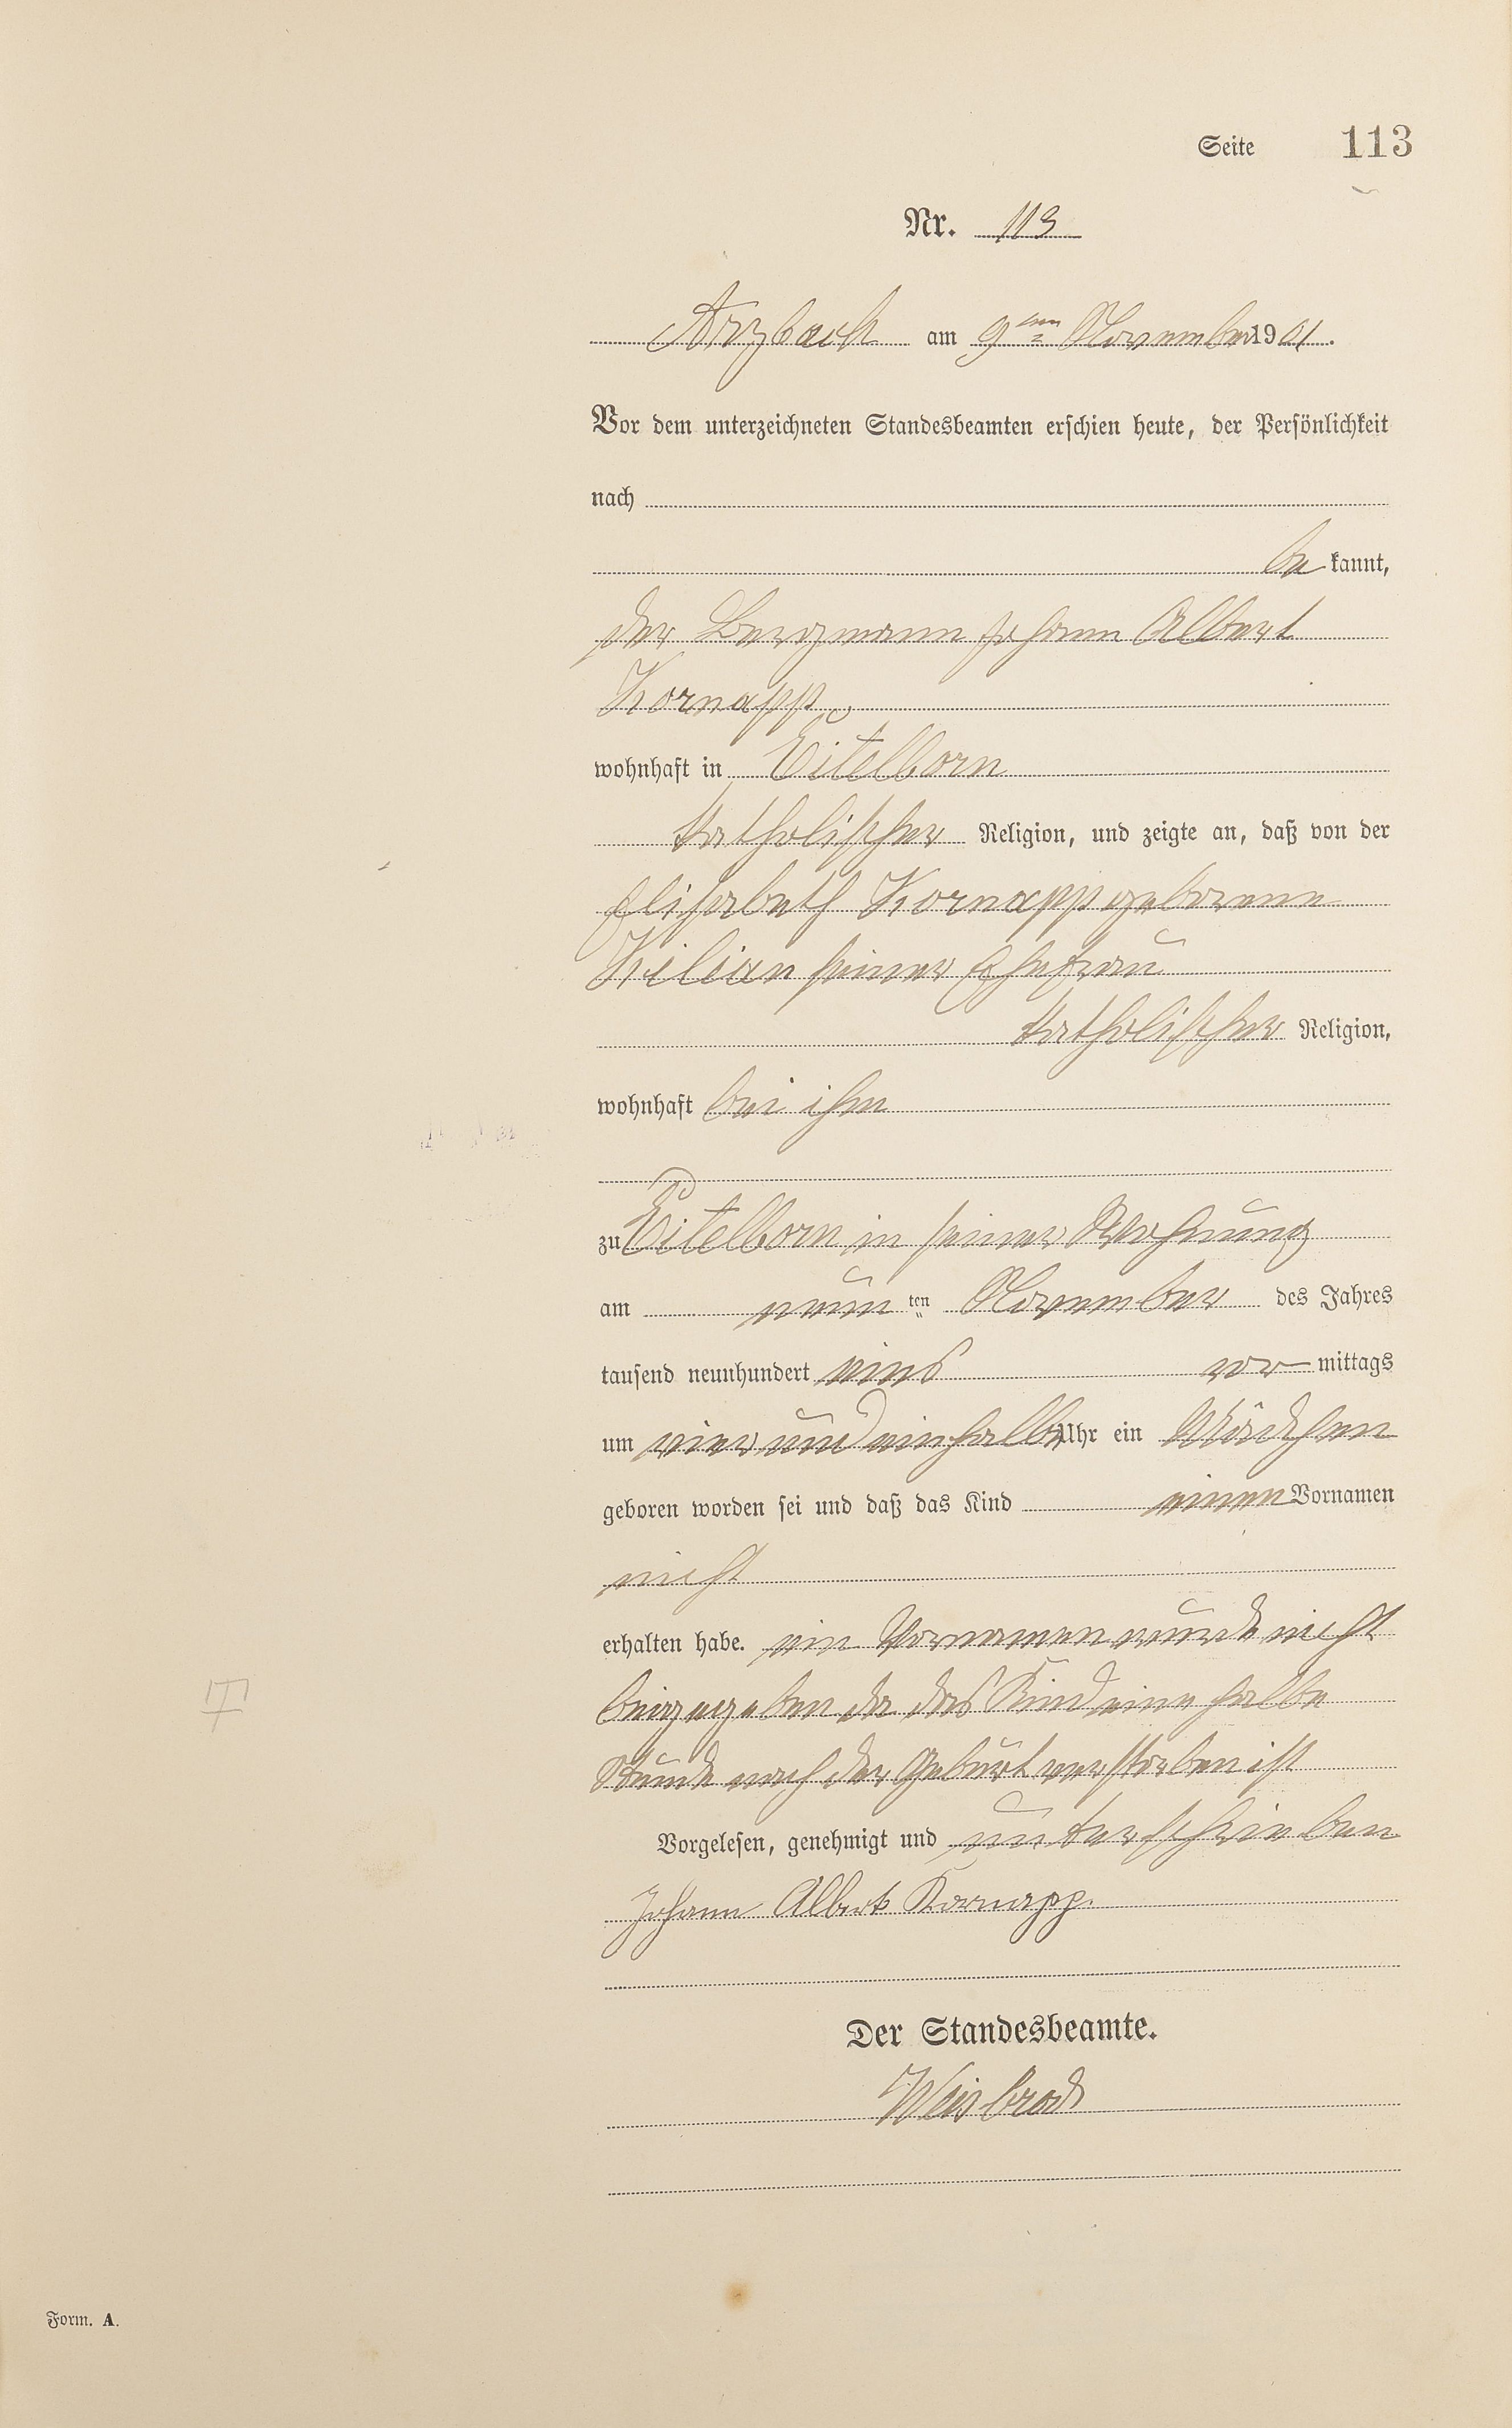 Seite 113
Nr. 113
Arzbach am 9ten November 1901.
Vor dem unterzeichneten Standesbeamten erschien heute, der Persönlichkeit
nach
be kannt,
der Bergmann Johann Albert
Kornapp
wohnhaft in Eitelborn
katholischer Religion, und zeigte an, daß von der
Elisabeth Kornapp geborene
Kilian seiner Ehefrau
katholischer Religion,
wohnhaft bei ihm
zu Eitelborn in seiner Wohnung
am neun ten November des Jahres
tausend neunhundert eins vor mittags
um vier und einhalb Uhr ein Mädchen
geboren worden sei und daß das Kind einen Vornamen
nicht
erhalten habe. ein Vornamen wurde nicht
beigegeben da das Kind eine halbe
Stunde nach der Geburt verstorben ist
Vorgelesen, genehmigt und unterschrieben
Johann Albert Kornapp.
Der Standesbeamte.
Weisbrod
Form. A.